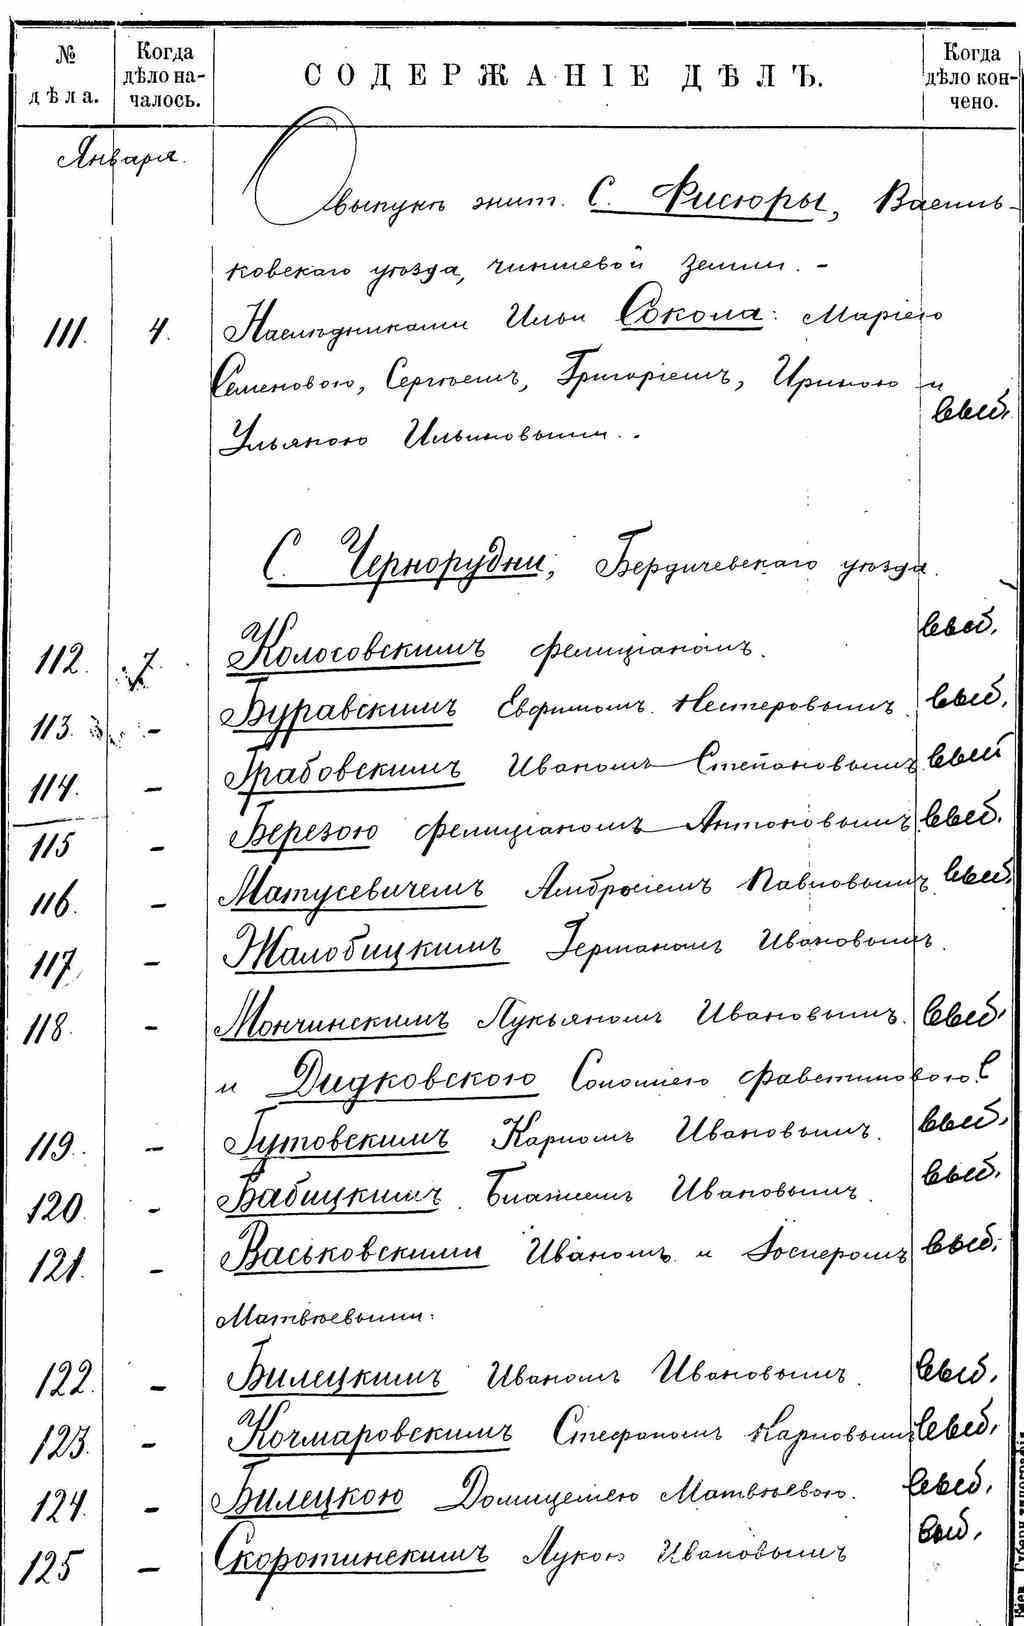 № дѣла.
Когда дѣло началось.
СОДЕРЖАНІЕ ДѢЛЪ.
Когда дѣло кончено.
Января.
О выкупѣ жит. С. Фисюры, Василь-
ковскаго уѣзда, чиншевой земли. -
111. 4. Наслѣдниками Ильи Сокола: Маріею
Семеновою, Сергѣемъ, Григоріемъ, Ириною и
Ульяною Ильиновыми. выб.
С. Чернорудни, Бердичевскаго уѣзда.
112. 7. Колосовскимъ Фелиціаномъ. выб.
113. - Буравскимъ Евфимомъ Нестеровымъ. выб.
114. - Грабовскимъ Иваномъ Степановымъ выб
115 - Березою Фелиціаномъ Антоновымъ выб.
116. - Матусевичемъ Амбросіемъ Павловымъ выб.
117. - Жалобицкимъ Германомъ Ивановымъ.
118. - Мончинскимъ Лукьяномъ Ивановымъ. выб.
и Дидковскою Соломіею Фавстиновою.
119. - Гутовскимъ Карпомъ Ивановымъ. выб.
120. - Бабицкимъ Блажеемъ Ивановымъ. выб.
121. - Васьковскими Иваномъ и Іосиеромъ выб.
Матвѣевыми.
122. - Билецкимъ Иваномъ Ивановымъ. выб.
123. - Кочмаровскимъ Стефаномъ Карповымъ выб.
124. - Билецкою Домицелею Матвѣевою. выб.
125 - Скоротинскимъ Лукою Ивановымъ выб.
Кіев. Губерн. типографія